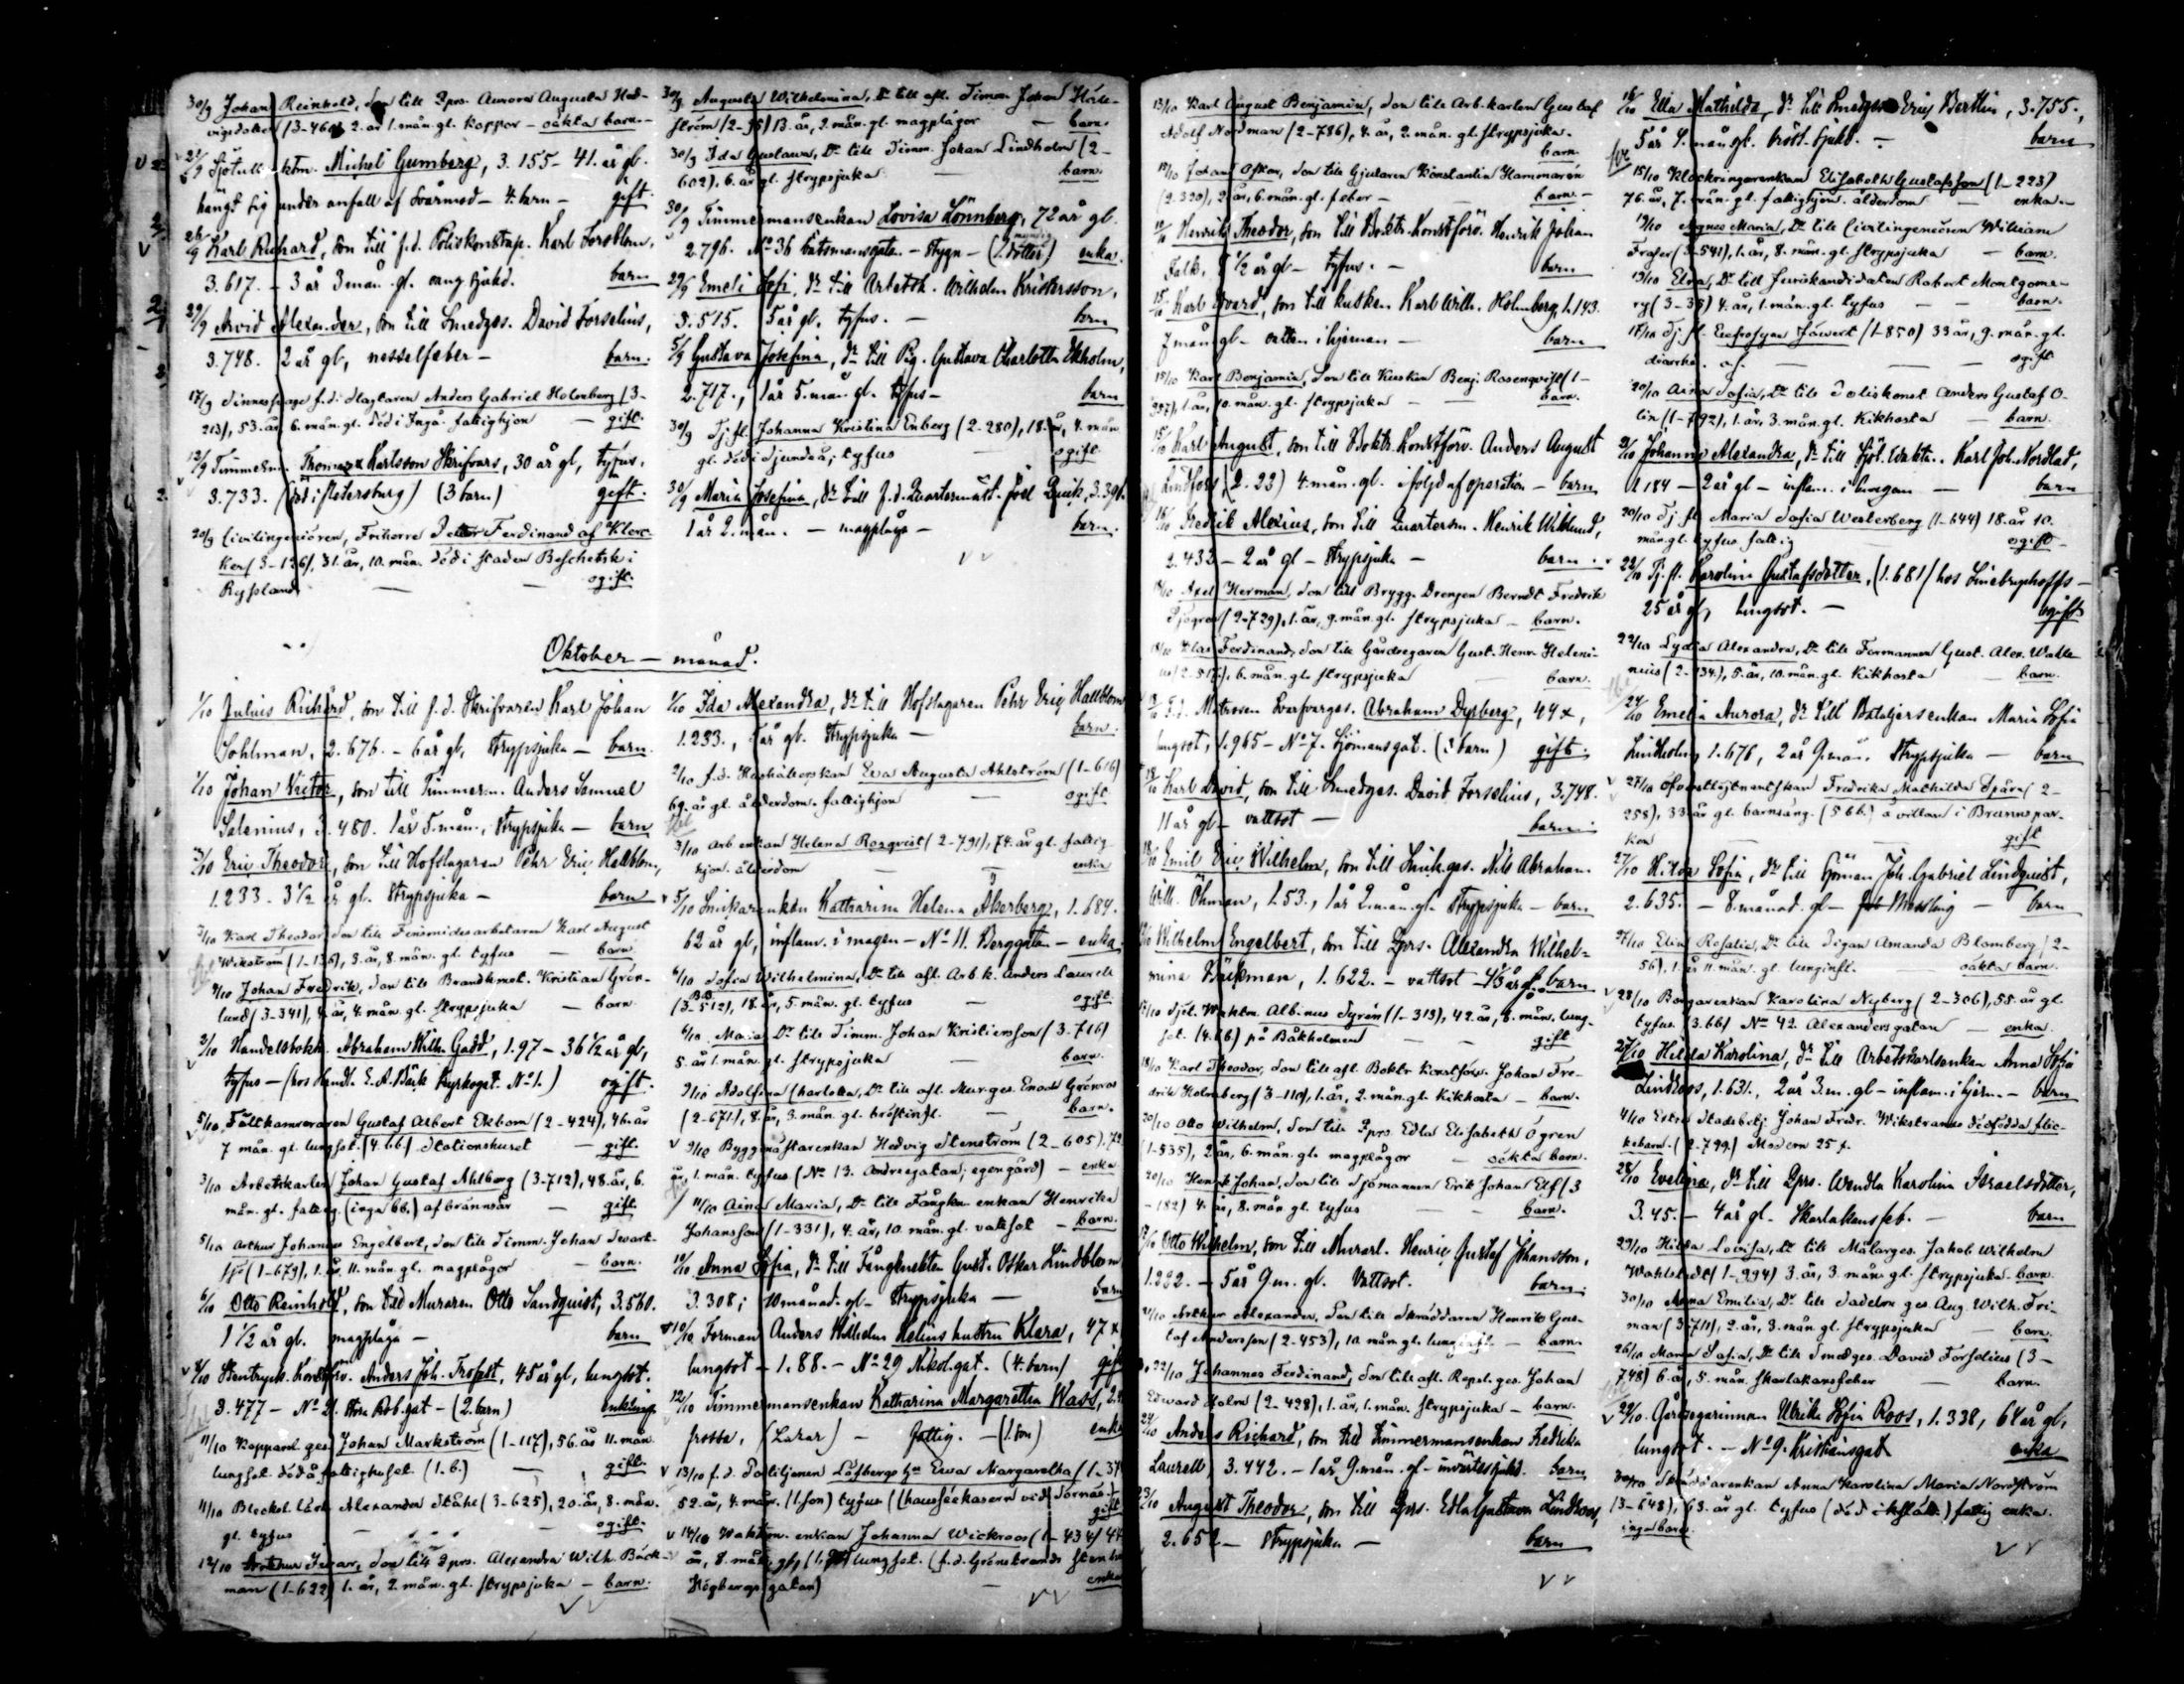 30/9 Johan Reinhold, son till Qprs. Aurora Augusta Hed-
vigsdotter (3-460) 2. år 1. mån. gl. koppor - oäkta barn.
Sjötull. vktm. Michel Gumberg, 3.155 - 41. år gl.
hängt sig under anfall af svårmod - 4. barn - gift.
26/9 Karl Richard, son till f.d. Poliskonstap. Karl Forsblom,
3.617. - 3 år 3 mån. gl. barn
29/9 Arvid Alexander, son till Smedges. David Forselius,
3.748. 2 år gl, nesselfeber - barn.
17/9 Sinnessvage f.d. Slagtaren Anders Gabriel Holmberg (3-
213), 53. år 6. mån. gl. död i Ingå. fattighjon - gift.
12/9 Timmerm. Thomas Karlsson Skrifvars, 30 år gl, tyfus,
3.733. (död i Petersburg) (3 barn) gift.
20/9 Civilingeniören, Friherre Ferdinand af Klerc-
ker (3-126), 31. år, 10. mån. död i staden Beschetsk i
Ryssland - ogift.
30/9 Augusta Wilhelmina, Dr till afl. Timm. Johan Hörte-
ström (2-95) 13. år, 2. mån. gl. magplågor - barn.
30/9 Ida Gustava, Dr till Timm. Johan Lindholm (2-
602), 6. år gl. strypsjuka - barn.
30/9 Timmermansenkan Lovisa Lönnberg, 72 år gl.
2.796. No 36 Båtsmansgatan - stygn - (1. myndig dotter) enka.
29/9 Emeli Sofi, dr till Arbetsk. Wilhelm Kristersson,
3.515. 5 år gl, tyfus. - barn
5/9 Gustava Josefina, dr till Pig. Gustava Charlotta Ekholm,
2.717., 1 år 5. mån. gl. tyfus - barn
30/9 Tj.fl. Johanna Kristina Enberg (2-280), 18. år, 4. mån
gl. död i Sjundeå; tyfus - ogift
30/9 Maria Josefina, dr till f.d. Quartermäst. Joel Quick, 3.391.
1 år 2. mån. - magplåga - barn.
Oktober - månad.
1/10 Julius Richard, son till f.d. Skrifvaren Karl Johan
Sohlman, 2.676. - 6 år gl, strypsjuka - barn.
1/10 Johan Victor, son till Timmerm. Anders Samuel
Salenius, 3.450. 1 år 5. mån., strypsjuka - barn
2/10 Eric Theodor, son till Hofslagaren Pehr Eric Hallblom,
1.233. 3½ år gl. strypsjuka - barn
Karl Theodor, son till Finsmidesarbetaren Karl August
Wikström (1-136), 3. år, 8. mån. gl. tyfus - barn
Johan Fredrik, son till Brandkonst. Kristian Grön-
lund (3-341), 4. år, 4. mån. gl. strypsjuka - barn.
2/10 Handelsbokh. Abraham Wilh. Gadd, 1.97 - 36½ år gl,
tyfus - (hos Handl. E. A. Bäck Kyrkogat. No 1.) ogift.
5/10 Fältkamreraren Gustaf Albert Ekbom (2-424), 46. år
7 mån. gl. lungsot. (4. bb.) Stationshuset - gift.
3/10 Arbetskarlen Johan Gustaf Ahlborg (3-712), 48. år, 6.
mån. gl. fattig. (inga bb.) af brännsår - gift.
5/10 Arthur Johannes Engelbert, son till Timm. Johan Swart-
(1-679), 1. år 11. mån. gl. magplågor - barn.
6/10 Otto Reinhold, son till Muraren Otto Sandquist, 3.560.
1½ år gl. magplåga - barn
8/10 Stentryck. Konstförv. Anders Joh. Trofast, 45 år gl, lungsot.
3.477 - No 21. Stora Rob.gat - (2. barn) enkling
11/10 Kopparsl. ges. Johan Markström (1-117), 56. år 11. mån.
lungsot. död å fattighuset (1. b.) - gift.
11/10 Blecksl. lärl. Alexander Ståhl (3-625), 20. år, 8. mån.
gl. tyfus - ogift.
12/10 Arthur Ivar, son till Qprs. Alexandra Wilh. Bäck-
man (1-622) 1. år, 2. mån. gl. strypsjuka - barn.
1/10 Ida Alexandra, dr till Hofslagaren Pehr Eric Hallblom
1.233., 5 år gl. strypsjuka - barn.
2/10 f.d. Hushållerskan Eva Augusta Ahlström (1-616)
69. år gl. ålderdom. fattighjon - ogift
3/10 Arb. enkan Helena Rosqvist (2-791), 74. år gl. fattig-
hjon. ålderdom - enka
5/10 Snickarenkan Katharina Helena Åkerberg, 1.684.
62 år gl, inflam. i magen - No 11. Berggatan - enka.
6/10 Sofia Wilhelmina, Dr till afl. Arb.k. Anders Laurell
(3-512), 18. år, 5. mån. gl. tyfus - ogift
6/10 Maria, Dr till Timm. Johan Kristiersson (3-716)
5. år 1. mån. gl. strypsjuka - barn.
9/10 Adolfina Charlotta, Dr till afl. Mur.ges. Enoch Grönroos
(2-671), 8. år, 3. mån. gl. bröstinfl. - barn.
9/10 Byggmästarenkan Hedvig Stenström (2-605), 72.
år, 1. mån. tyfus (No 13. Andreegatan, egen gård) - enka
11/10 Aina Maria, Dr till Fångkn. enkan Henrika
Johansson (1-331), 4. år, 10. mån. gl. vattsot - barn.
10/10 Anna Sofia, dr till Fångknekten Gust. Oskar Lindblom
3.308; 10 månad. gl - strypsjuka - barn
10/10 Forman Anders Wilhelm Helins hustru Klara, 47
lungsot - 1.88. - No 29 Nikol.gat. (4. barn) gift
12/10 Timmermansenkan Katharina Margaretha Wass,
frossa, (Lazar) - fattig. - (1. son) enka
13/10 f.d. Poliljonen Löfbergs hu Eva Margaretha (1-
52. år, 4. mån. (1. son) tyfus ( kasern vid Sörnäs) gift
14/10 Waktm. enkan Johanna Wickroos (1-434) 44
år, 8. mån. gl lungsot. (f.d. Grönstrands
Högbergsgatan) - enka
13/10 Karl August Benjamin, son till Arb. karlen Gustaf
Adolf Nordman (2-786), 4. år, 2. mån. gl. strypsjuka. barn.
Johan Oskar, son till Gjutaren Konstantin Hammarén
(2.320), 2 år, 6. mån. gl. feber - barn.
Henrik Theodor, son till Boktr. Konstförv. Henrik Johan
Falk, ½ år gl - tyfus. - barn
15/10 Karl Edvard, son till kusken Karl Wilh. Holmberg, 1.143.
7 mån gl - vatten i hjernan - barn
Karl Benjamin, son till Kusken Benj. Rosenqvist (1-
1. år, 10. mån. gl. strypsjuka - barn.
15/10 Karl August, son till Boktr. Konstförv. Anders August
Lindfors (2.22) 4. mån. gl. i följd af operation - barn
16/10 Fredrik Alexius, son till Quarterm. Henrik Wiklund,
2.433 - 2 år gl - strypsjuka - barn.
Axel Herman, son till Brygg. Drengen Berndt Fredrik
Sjögren (2-729), 1. år, 9. mån. gl. strypsjuka - barn.
Klas Ferdinand, son till Gårdsegaren Gust. Henr. Heleni-
us (2-517), 6. mån. gl. strypsjuka - barn.
F.d. Matrosen Abraham Dyrberg, 44
lungsot, 1.965 - No 7. Sjömansgat. (3 barn) gift.
18/10 Karl David, son till Smedges. David Forselius, 3.748.
11 år gl - vattsot - barn.
Emil Eric Wilhelm, son till Snick.ges. Nils Abraham
Wilh. Öhman, 1.53., 1 år 2. mån. gl. strypsjuka - barn
Wilhelm Engelbert, son till Qprs. Alexandra Wilhel-
mina Bäckman, 1.622. - vattsot - barn
Sjöt. Waktm. Albinus Syrén (1-313), 42. år, 8. mån. lung-
sot. (4. bb) på Båkholmen - gift
18/10 Karl Theodor, son till afl. Boktr. Konstförv. Johan Fre-
drik Holmberg (3-110), 1. år, 2. mån. gl. kikhosta - barn.
20/10 Otto Wilhelm, son till Qprs. Edla Elisabeth Ögren
(1-535), 2. år, 6. mån. gl. magplågor - oäkta barn.
20/10 Henrik Johan, son till Sjömannen Erik Johan Elf (3
-182) 4. år, 8. mån gl. tyfus - barn.
Otto Wilhelm, son till Murarl. Henric Gustaf Johansson,
1.222. - 5 år 9. m. gl. Vattsot. barn.
21/10 Arthur Alexander, son till Skräddaren Henrik Gus-
taf Andersson (2-453), 10. mån. gl. lunginfl. - barn.
22/10 Johannes Ferdinand, son till afl. Repsl. ges. Johan
Edward Holm (2-428), 1. år, 1. mån. strypsjuka - barn.
Anders Richard, son till Timmermansenkan Fredrika
Laurell, 3.442. - 1 år, 9. mån. gl - invärtes sjukd. barn
23/10 August Theodor, son till Qprs. Edla Gustava Lindroos,
2.652 - strypsjuka - barn
16/10 Ella Mathilda, dr till Smedges. Eric Berthin, 3.755.,
5 år 4. mån gl. bröst. sjukd. - barn
15/10 Klockringarenkan Elisabeth Gustafsson (1-223)
76. år, 7. mån. gl. fattighjon. ålderdom - enka.
19/10 Agnes Maria, Dr till Civilingeniören William
Fraser (3-541), 1. år, 8. mån. gl. strypsjuka - barn.
13/10 Elna, Dr till Juriskandidaten Robert Montgome-
ry (3-35) 4. år, 1. mån. gl. tyfus - barn.
18/10 Tj. fl. Eufrosyne Jäwert (1-850) 33 år, 9. mån. gl.
diarrhé. - ogift
20/10 Aina Sofia, Dr till Poliskonst. Anders Gustaf O-
lin (1-792), 1. år, 3. mån. gl. Kikhosta - barn.
21/10 Johanna Alexandra, dr till Sjöt. Vaktm. Karl Joh. Nordlad,
1.184 - 2 år gl - inflam. i lungan - barn
20/10 Tj. fl. Maria Sofia Westerberg (1-644) 18. år 10.
mån. gl. tyfus fattig - ogift
22/10 Tj. fl. Karolina Gustafsdotter, (1.681/ hos Sinebrychoffs -
25 år gl, lungsot. - ogift
22/10 Lydia Alexandra, Dr till Formannen Gust. Alex. Walle-
nius (2-134), 5. år, 10. mån. gl. Kikhosta - barn.
24/10 Emelia Aurora, dr till Bataljersenkan Maria Sofia
Lindholm, 1.676, 2 år 9. mån. strypsjuka - barn
27/10 Öfverstlöjtnantskan Fredrika Mathilda Spåra (2-
258), 33. år gl. barnsäng. (5 bb.) å villan i Brunnspar-
ken - gift
27/10 Hilda Sofia, dr till Sjöman Joh. Gabriel Lindquist,
2.635. - 8. månad. gl - Messling - barn
27/10 Elin Rosalie, Dr till Pigan Amanda Blomberg (2-
56), 1. år 11. mån. gl. lunginfl. - oäkta barn.
28/10 Borgarenkan Karolina Nyberg (2-306), 55. år gl.
tyfus. (3. bb) No 42. Alexandersgatan - enka.
27/10 Hilda Karolina, dr till Arbetskarlsenkan Anna Sofia
Lindroos, 1.631., 2 år 3. m. gl - inflam. i hjern. - barn
4/10 Extra Stadsbetj. Johan Fredr. Wikstrands dödfödda flic-
kebarn. (2-799.) Modern 25
28/10 Evelina, dr till Qprs. Wendla Karolina Israelsdotter,
3.45. - 4 år gl. Skarlakansfeb. - barn
29/10 Hilda Lovisa, Dr till Målarges. Jakob Wilhelm
Wahlstedt (1-994) 3. år, 3. mån. gl. strypsjuka - barn
30/10 Anna Emilia, Dr till Sadelm. ges. Aug. Wilh. Fri-
man (3-711), 2. år, 3. mån. gl. strypsjuka - barn
26/10 Maria Sofia, Dr till Smedges. David Forselius (3-
748) 6. år, 5. mån. Skarlakansfeber - barn.
29/10. Gårdsegarinnan Ulrika Sofia Roos, 1.338, 64 år gl,
lungsot. - No 9. Kristinsgat enka
30/10 Skräddarenkan Anna Karolina Maria Nordström
(3-648), 63. år gl. tyfus (död i ) fattig enka.
inga barn.